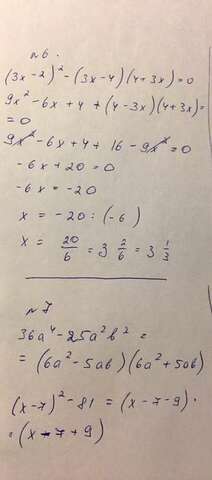 n 6.
(3x-2)² - (3x-4)(4+3x)=0
9x² - 6x + 4 + (4-3x)(4+3x)=
= 0
9x² - 6x + 4 + 16 - 9x² = 0
- 6x + 20 = 0
- 6x = -20
x = -20 : (-6)
x = 20/6 = 3 2/6 = 3 1/3
n 7
36a⁴ - 25a²b² =
= (6a² - 5ab)(6a² + 5ab)
(x-7)² - 81 = (x-7-9)·
·(x-7+9)